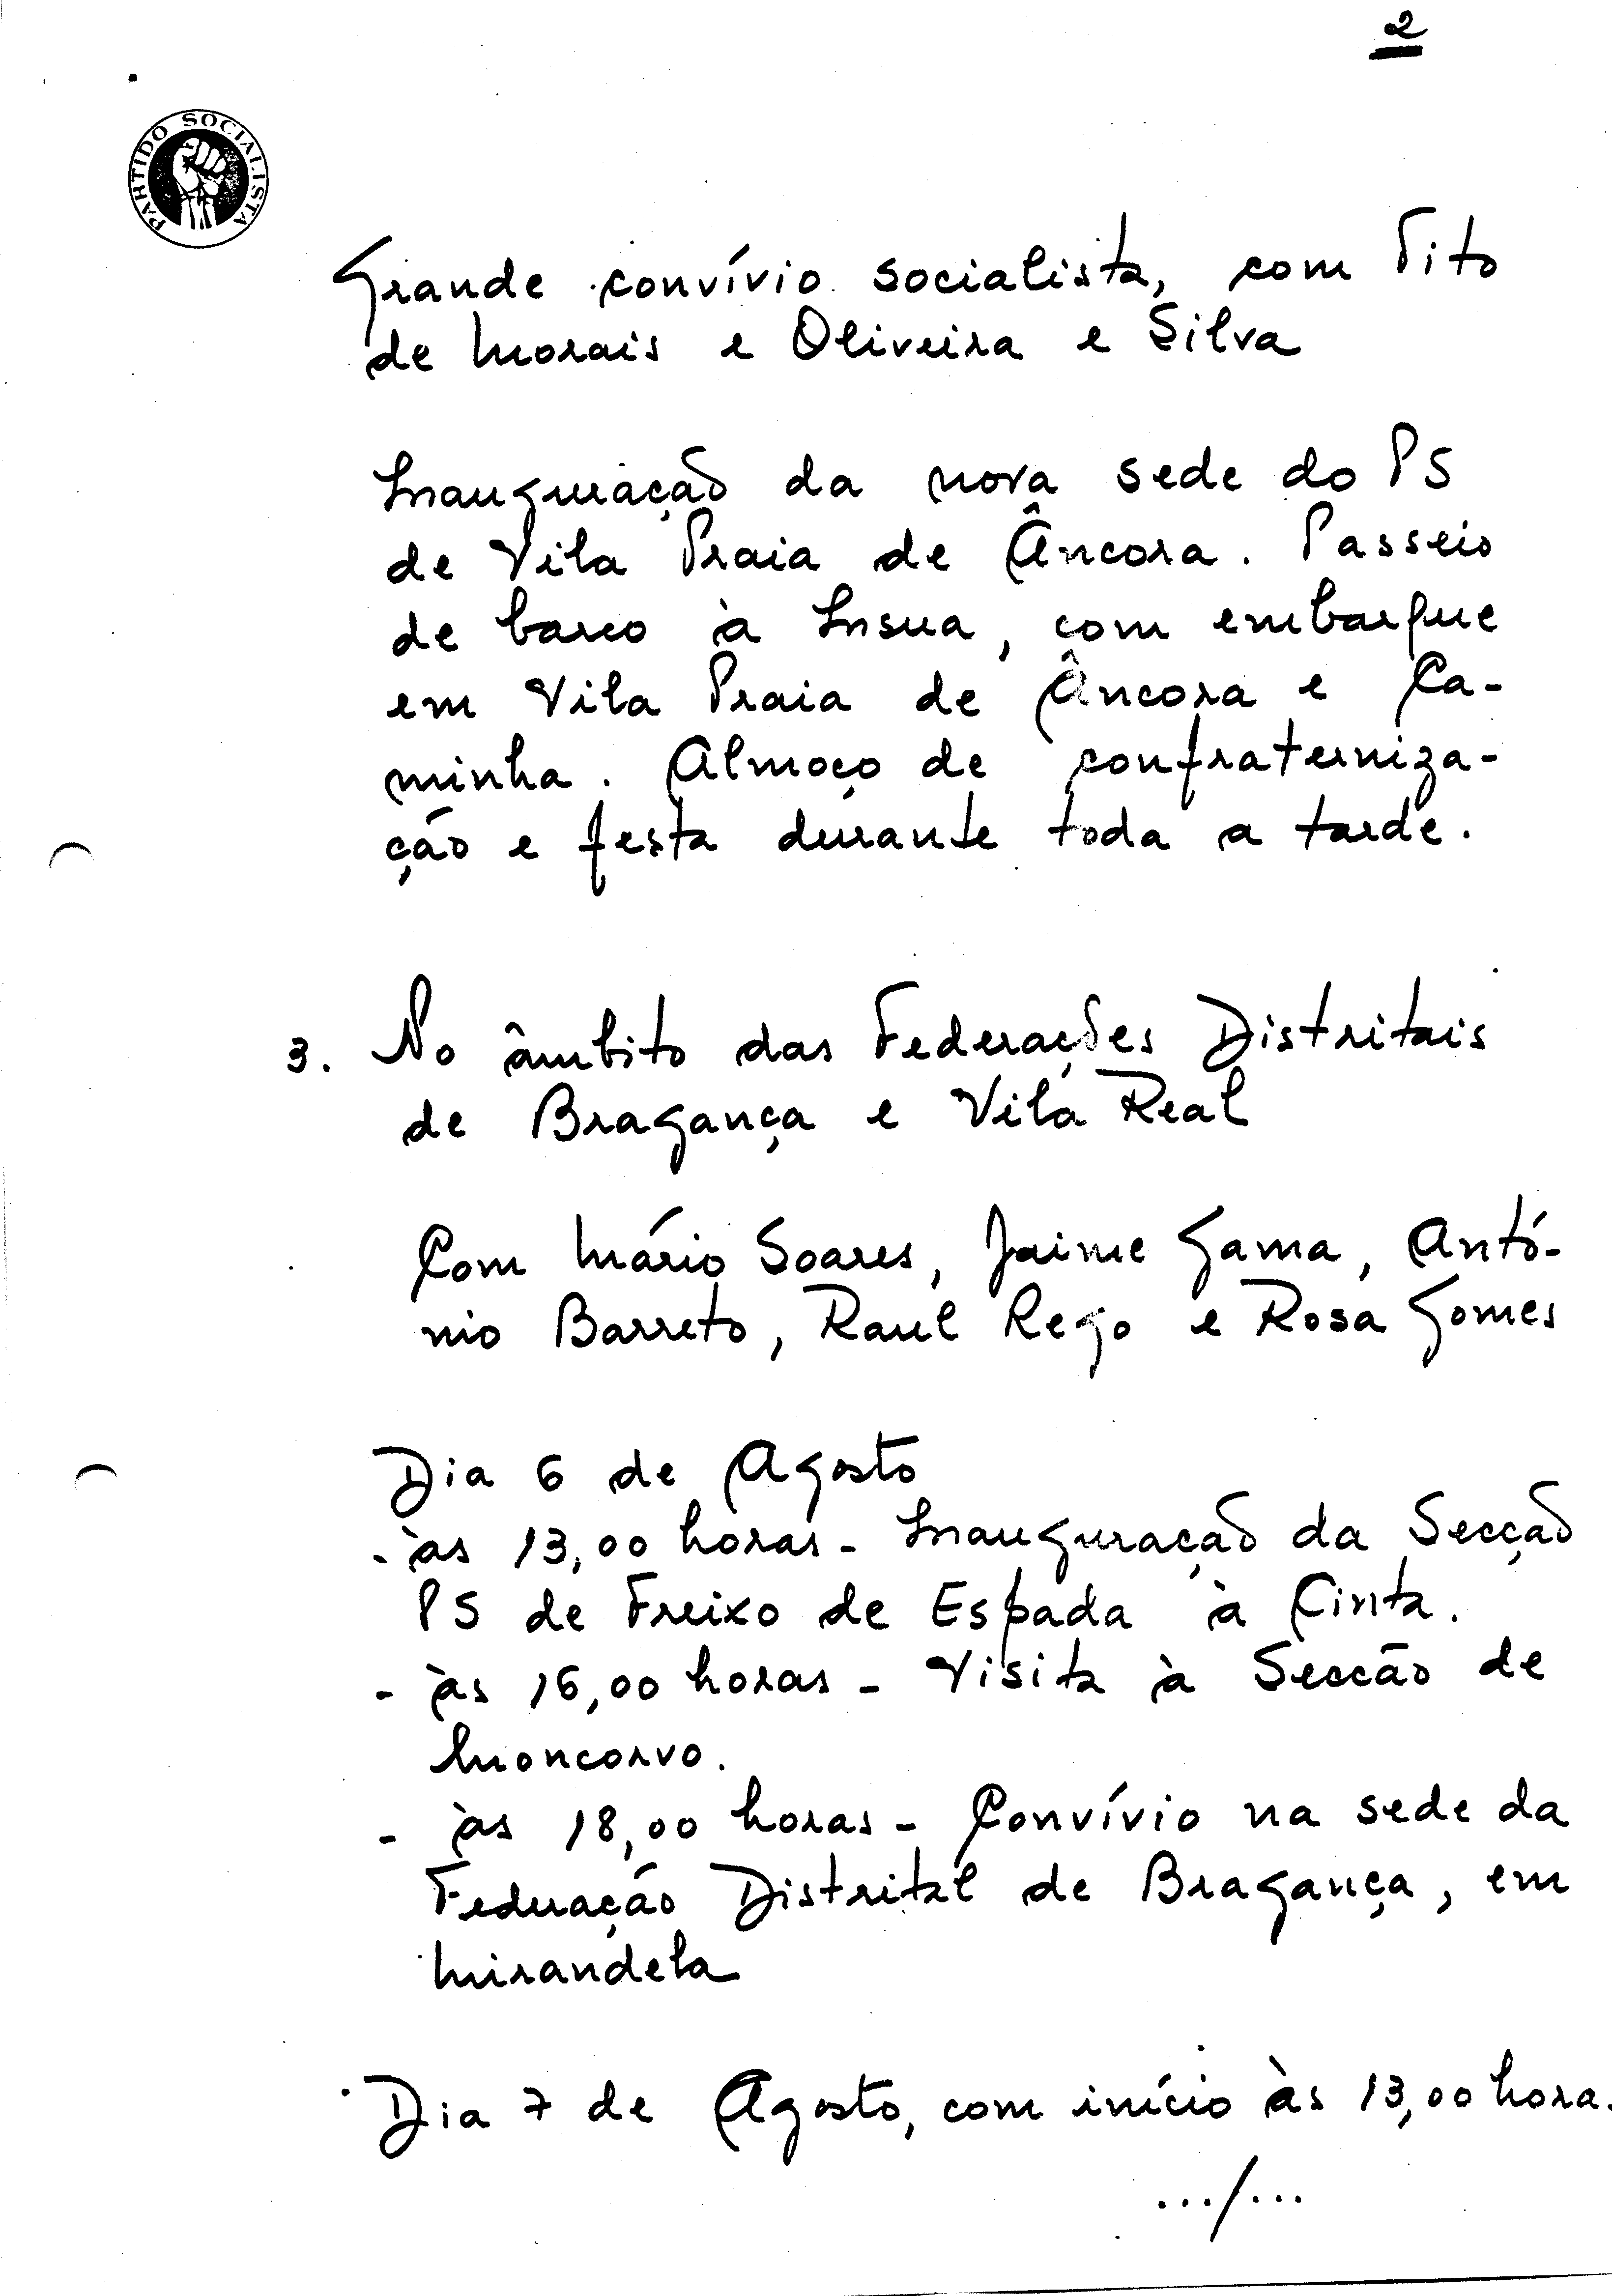 2
PARTIDO SOCIALISTA
Grande convívio socialista, com Tito
de Morais e Oliveira e Silva
Inauguração da nova sede do PS
de Vila Praia de Âncora. Passeio
de barco à Insua, com embarque
em Vila Praia de Âncora e Ca-
minha. Almoço de confraterniza-
ção e festa durante toda a tarde.
3. No âmbito das Federações Distritais
de Bragança e Vila Real
Com Mário Soares, Jaime Gama, Antó-
nio Barreto, Raul Rego e Rosa Gomes
Dia 6 de Agosto
- às 13,00 horas - Inauguração da Secção
PS de Freixo de Espada à Cinta.
- às 16,00 horas - Visita à Secção de
Moncorvo.
- às 18,00 horas - Convívio na sede da
Federação Distrital de Bragança, em
Mirandela
Dia 7 de Agosto, com início às 13,00 hora.
.../...